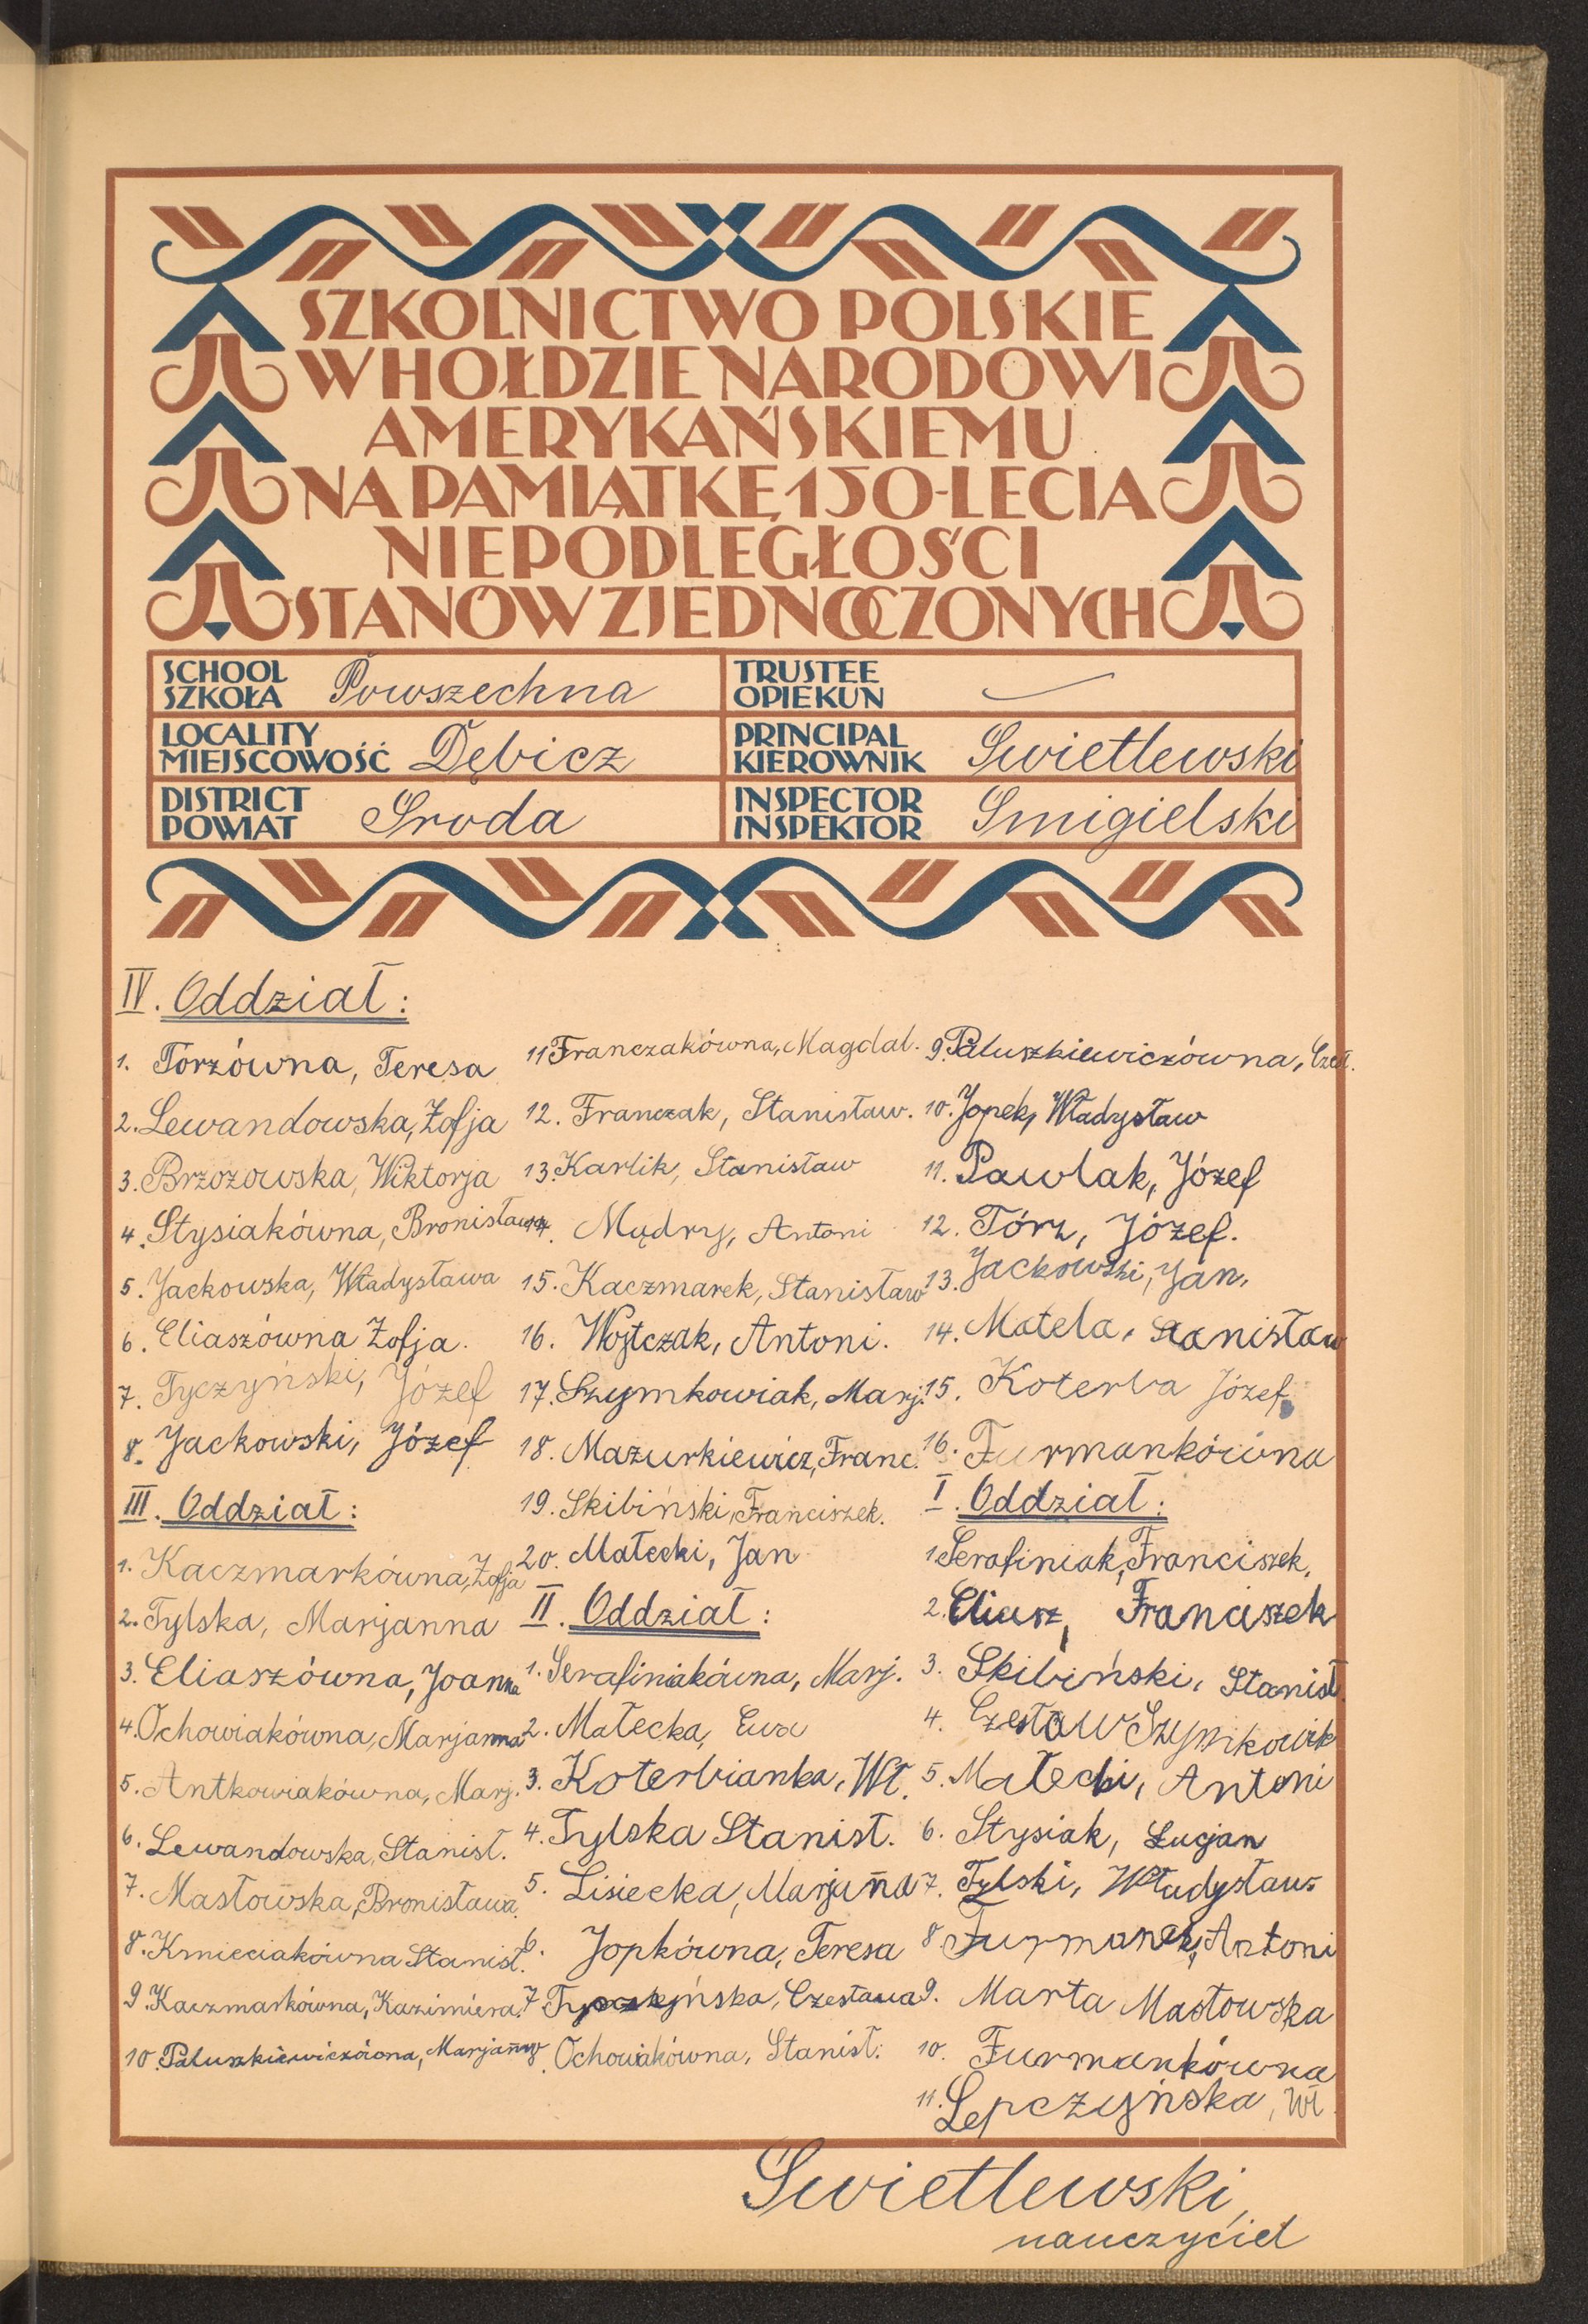 SZKOLNICTWO POLSKIE
W HOŁDZIE NARODOWI
AMERYKAŃSKIEMU
NA PAMIĄTKĘ 150-LECIA
NIEPODLEGŁOŚCI
STANÓW ZJEDNOCZONYCH
SCHOOL
SZKOŁA Powszechna
TRUSTEE
OPIEKUN
LOCALITY
MIEJSCOWOŚĆ Dębicz
PRINCIPAL
KIEROWNIK Swietlewski
DISTRICT
POWIAT Sroda
INSPECTOR
INSPEKTOR Smigielski
IV. Oddział:
1. Torzówna, Teresa
2. Lewandowska, Zofja
3. Brzozowska, Wiktorja
4. Stysiakówna, Bronisława
5. Jackowska, Władysława
6. Eliaszówna Zofja.
7. Tyczyński, Józef
8. Jackowski, Józef
III. Oddział:
1. Kaczmarkówna, Zofja
2. Tylska, Marjanna
3. Eliaszówna, Joanna
4. Ochowiakówna, Marjanna
5. Antkowiakówna, Marj.
6. Lewandowska, Stanisł.
7. Masłowska, Bronisława
8. Kmieciakówna Stanisł.
9. Kaczmarkówna, Kazimiera
10. Paluszkiewiczówna, Marjanna
11 Franczakówna, Magdal.
12. Franczak, Stanisław.
13. Karlik, Stanisław
14. Mądry, Antoni
15. Kaczmarek, Stanisław
16. Wojtczak, Antoni.
17. Szymkowiak, Marj.
18. Mazurkiewicz, Franc.
19. Skibiński, Franciszek.
20. Małecki, Jan
II. Oddział:
1. Serafiniakówna, Marj.
2. Małecka, Ewa
3. Koterbianka, Wł.
4. Tylska Stanisł.
5. Lisiecka, Marjan̄a
6. Jopkówna, Teresa
7. Tyczyńska, Czesława
Ochowiakówna, Stanisł.
9. Paluszkiewiczówna, Czesł.
10. Jopek, Władysław
11. Pawlak, Józef
12. Tórz, Józef.
13. Jackowski, Jan,
14. Matela, Stanisław
15. Koterba Józef
16. Furmankówna
I. Oddział:
1 Serafiniak, Franciszek,
2. Eliasz, Franciszek
3. Skibiński, Stanisł.
4. Czesław Szymkowik
5. Małecki, Antoni
6. Stysiak, Łucjan
7. Tylski, Władysław
8 Furmanek, Antoni
9. Marta Masłowska
10. Furmankówna
11. Lepczyńska, Wł
Swietlewski,
nauczyciel